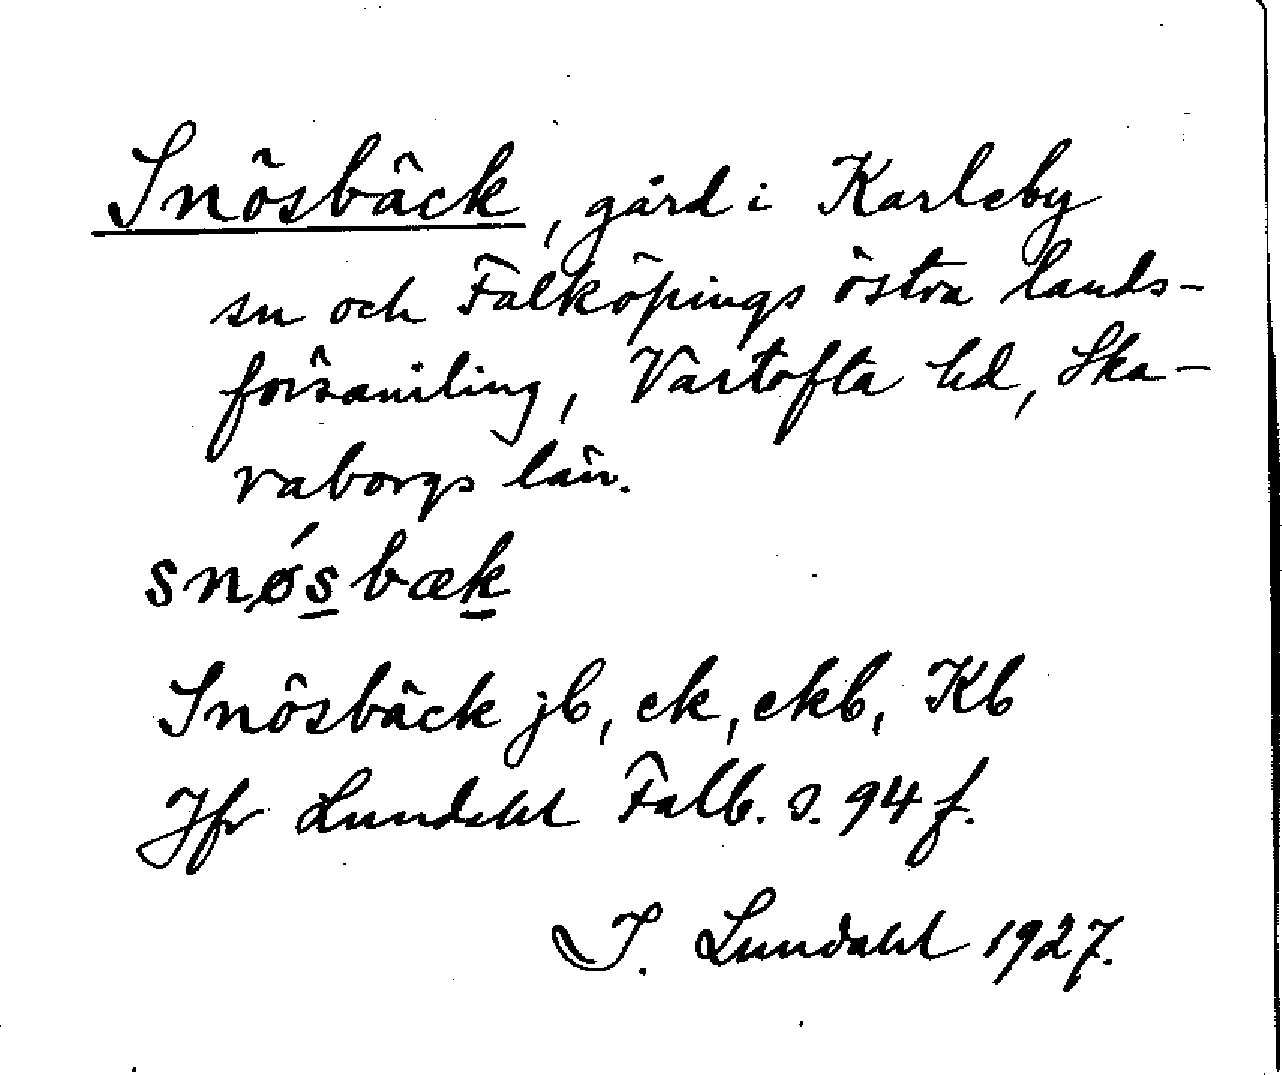 Snösbäck, gård i Karleby
sn och Falköpings östra lands-
församling, Vartofta hd, Ska-
raborgs län.
snǿsbæk
Snösbäck jb, ek, ekb, Kb
Jfr Lundahl Falb. s. 94 f.
I. Lundahl 1927.